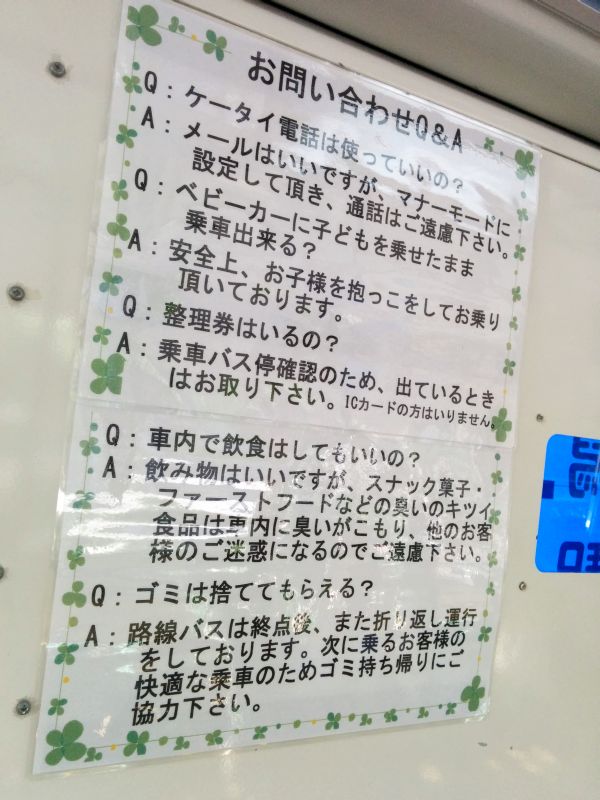 お問い合わせQ&A
Q：ケータイ電話は使っていいの？
A：メールはいいですが、マナーモードに
設定して頂き、通話はご遠慮下さい。
Q：ベビーカーに子どもを乗せたまま
乗車出来る？
A：安全上、お子様を抱っこをしてお乗り
頂いております。
Q：整理券はいるの？
A：乗車バス停確認のため、出ているとき
はお取り下さい。ICカードの方はいりません。
Q：車内で飲食はしてもいいの？
A：飲み物はいいですが、スナック菓子・
ファーストフードなどの臭いのキツイ
食品は車内に臭いがこもり、他のお客
様のご迷惑になるのでご遠慮下さい。
Q：ゴミは捨ててもらえる？
A：路線バスは終点後、また折り返し運行
をしております。次に乗るお客様の
快適な乗車のためゴミ持ち帰りにご
協力下さい。